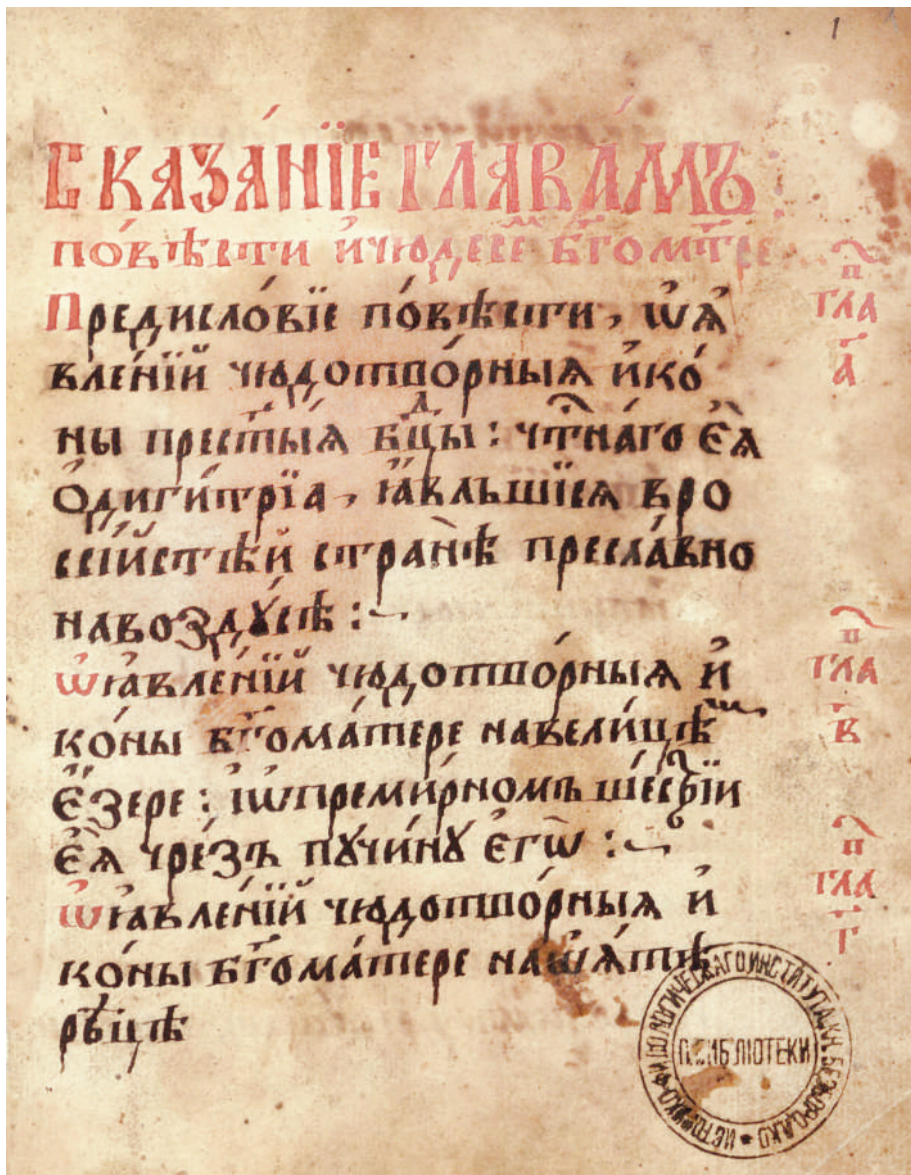 1
СКАЗА́НЇЕ ГЛАВА́МЪ
по́вѣсти и҆чюдесем бг҃ома҃тре
Предисло́вїе по́вѣсти, ѡ҆ꙗ҆
вле́нїй чюдотво́рныѧ и҆ко́
ны прест҃ы́ѧ бцⷣы : чт҃на́го є҆ѧ̀
Ѻ҆диги́трїа, ꙗ҆́вльшїѧсѧ вро
сїйстѣ́й странѣ̀ пресла́вно
навозду́сѣ :~
ѡ҆ꙗвле́нїй чюдотво́рныѧ и҆
ко́ны бг҃ома́тере навели́цѣм
є҆́зере : і҆ѡ҆преми́рномъ ше́ствїи
є҆ѧ̀ чре́зъ пꙋчи́нꙋ є҆гѡ̀ :~
ѡ҆ꙗвле́нїй чюдотво́рныѧ и҆
ко́ны бг҃ома́тере наѡ҆ѧ́тѣ
рѣ́цѣ
п
гла
а҃
п
гла
в҃
п
гла
г҃
ИСТОРИКО-ФИЛОЛОГИЧЕСКАГО ИНСТИТУТА КН. БЕЗБОРОДКО
БИБЛІОТЕКИ